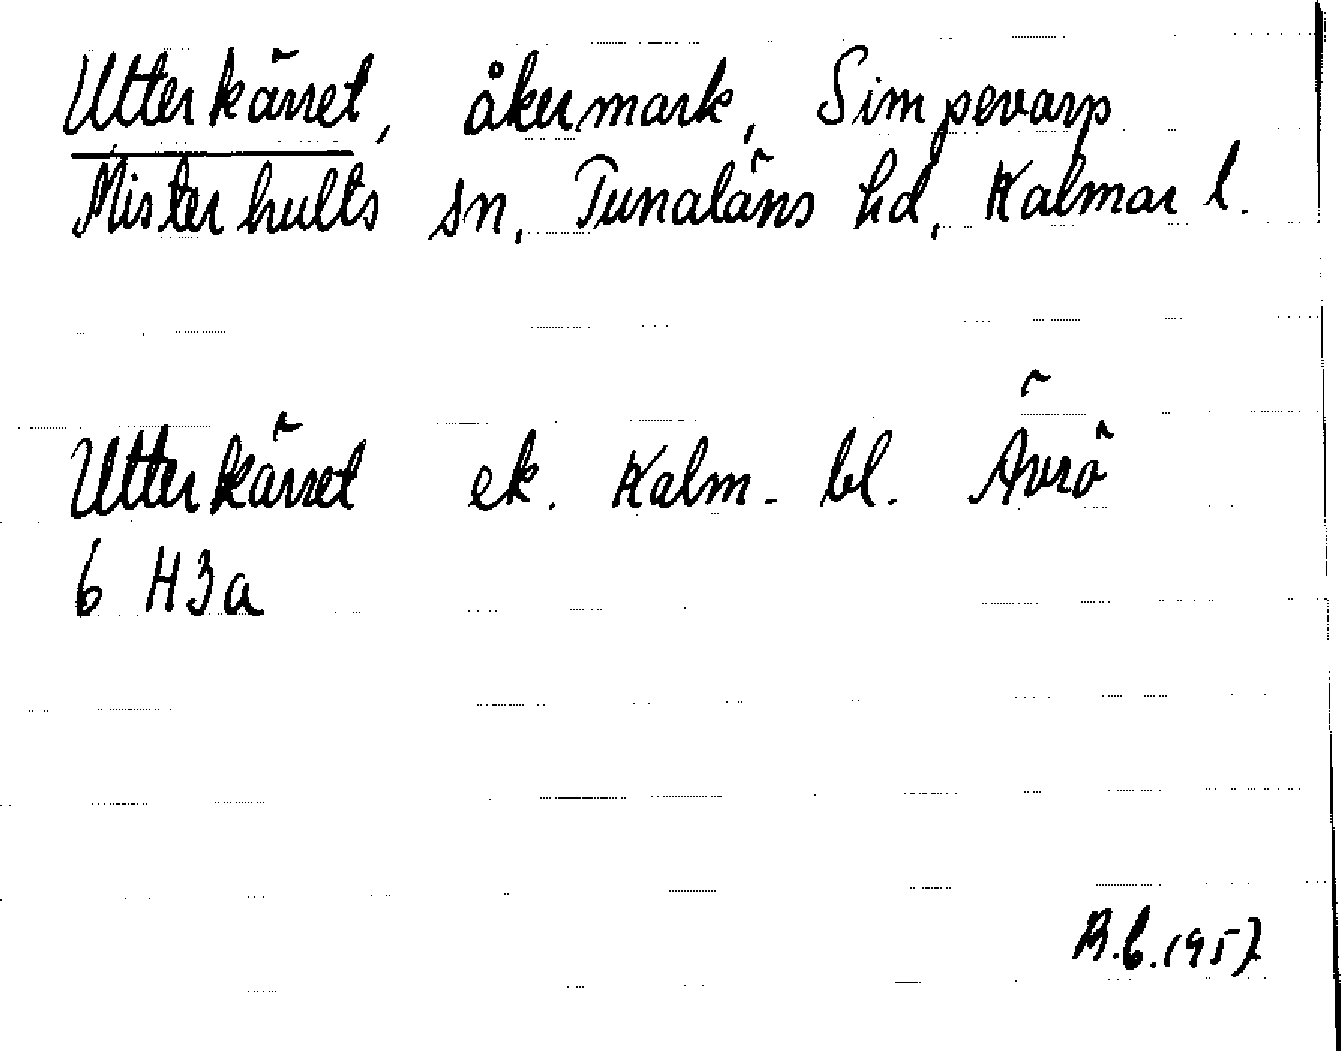 Utterkärret, åkermark, Simpevarp
Misterhults sn, Tunaläns hd, Kalmar l.
Utterkärret ek. Kalm. bl. Ävrö
6 H3a
1957